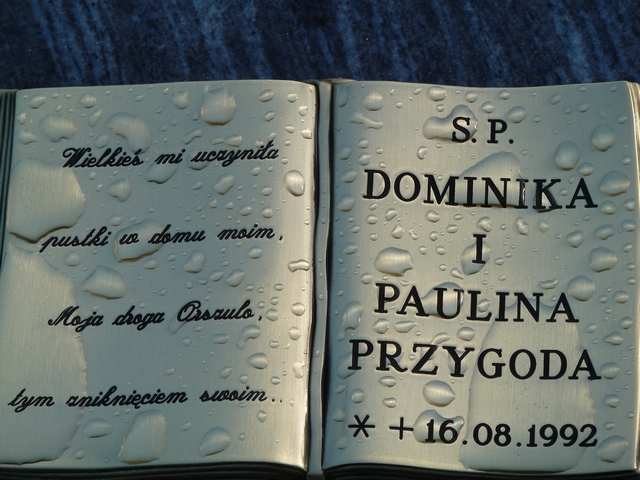 Wielkieś mi uczyniła
pustki w domu moim,
Moja droga Orszulo,
tym zniknięciem swoim..
Ś.P.
DOMINIKA
I
PAULINA
PRZYGODA
* + 16.08.1992